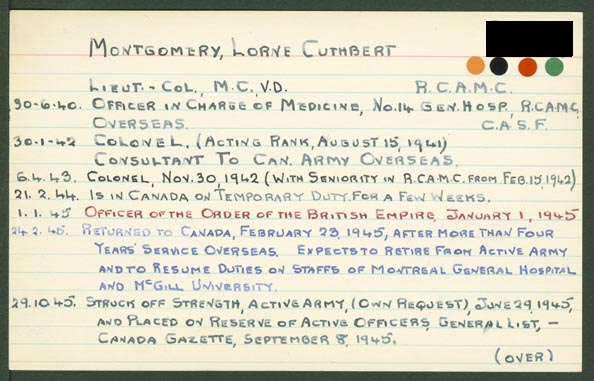 MONTGOMERY, LORNE CUTHBERT
LIEUT.-COL., M.C., V.D. R.C.A.M.C.
30-6-40. OFFICER IN CHARGE OF MEDICINE, NO.14 GEN. HOSP., R.C.A.M.C.,
OVERSEAS. C.A.S.F.
30-1-42 COLONEL, (ACTING RANK, AUGUST 15, 1941)
CONSULTANT TO CAN. ARMY OVERSEAS.
6.4.43. COLONEL, NOV. 30, 1942 (WITH SENIORITY IN R.C.A.M.C. FROM FEB. 15, 1942)
21.2.44. IS IN CANADA ON TEMPORARY DUTY FOR A FEW WEEKS.
1.1.45 OFFICER OF THE ORDER OF THE BRITISH EMPIRE, JANUARY 1, 1945
24.2.45. RETURNED TO CANADA, FEBRUARY 23, 1945, AFTER MORE THAN FOUR
YEARS' SERVICE OVERSEAS. EXPECTS TO RETIRE FROM ACTIVE ARMY
AND TO RESUME DUTIES ON STAFFS OF MONTREAL GENERAL HOSPITAL
AND MCGILL UNIVERSITY.
29.10.45. STRUCK OFF STRENGTH, ACTIVE ARMY, (OWN REQUEST), JUNE 29, 1945,
AND PLACED ON RESERVE OF ACTIVE OFFICERS, GENERAL LIST, -
CANADA GAZETTE, SEPTEMBER 8, 1945.
(OVER)